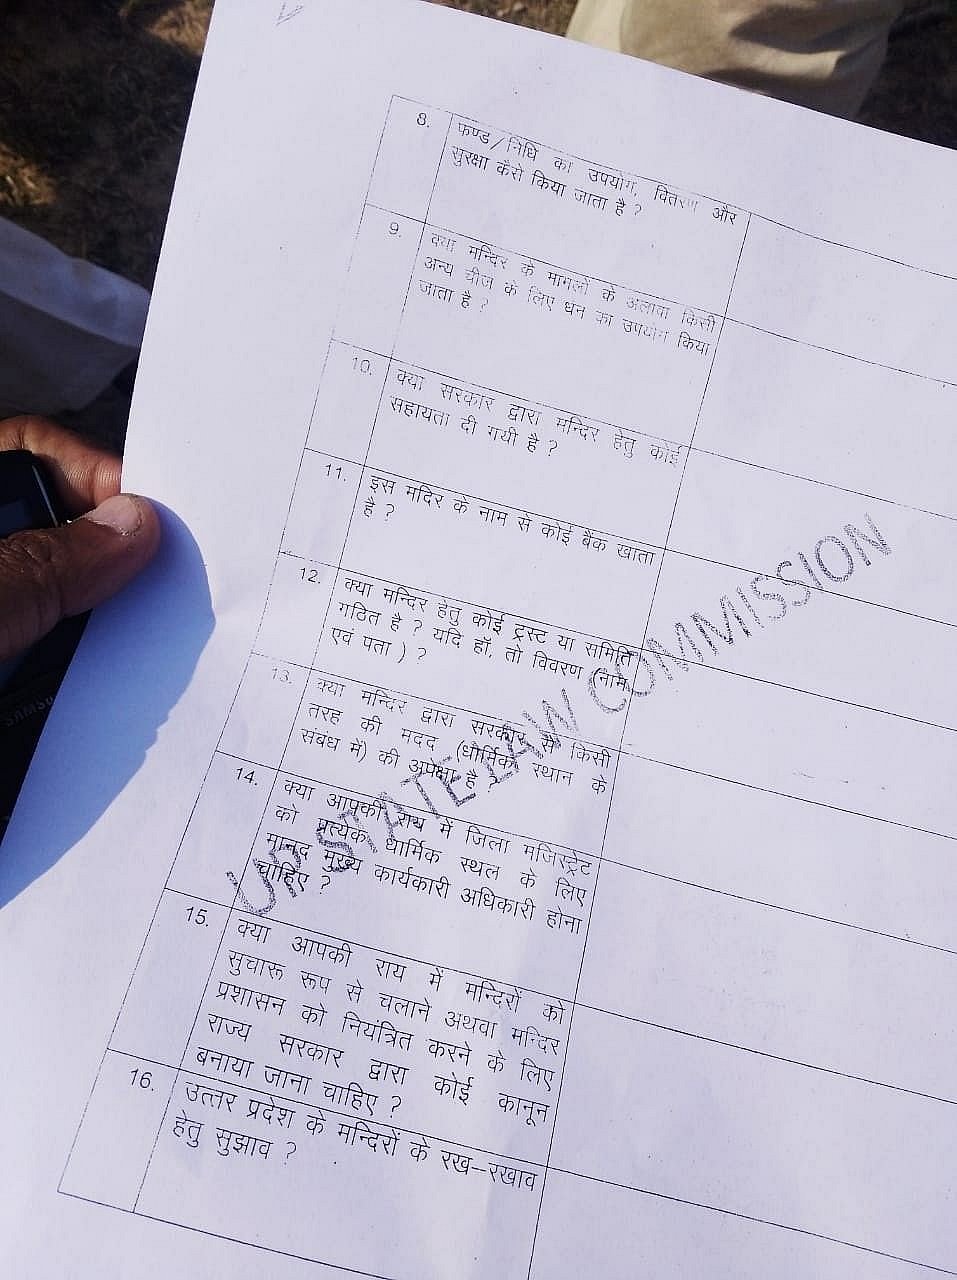 8. फण्ड/निधि का उपयोग, वितरण और
सुरक्षा कैसे किया जाता है ?
9. क्या मन्दिर के मामलों के अलावा किसी
अन्य चीज के लिए धन का उपयोग किया
जाता है ?
10. क्या सरकार द्वारा मन्दिर हेतु कोई
सहायता दी गयी है ?
11. इस मदिर के नाम से कोई बैंक खाता
है ?
12. क्या मन्दिर हेतु कोई ट्रस्ट या समिति
गठित है ? यदि हॉ, तो विवरण (नाम
एवं पता ) ?
13. क्या मन्दिर द्वारा सरकार से किसी
तरह की मदद (धार्मिक स्थान के
संबंध में) की अपेक्षा है ?
14. क्या आपकी राय में जिला मजिस्ट्रेट
को प्रत्येक धार्मिक स्थल के लिए
मानद मुख्य कार्यकारी अधिकारी होना
चाहिए ?
15. क्या आपकी राय में मन्दिरों को
सुचारू रूप से चलाने अथवा मन्दिर
प्रशासन को नियंत्रित करने के लिए
राज्य सरकार द्वारा कोई कानून
बनाया जाना चाहिए ?
16. उत्तर प्रदेश के मन्दिरों के रख–रखाव
हेतु सुझाव ?
UP STATE LAW COMMISSION